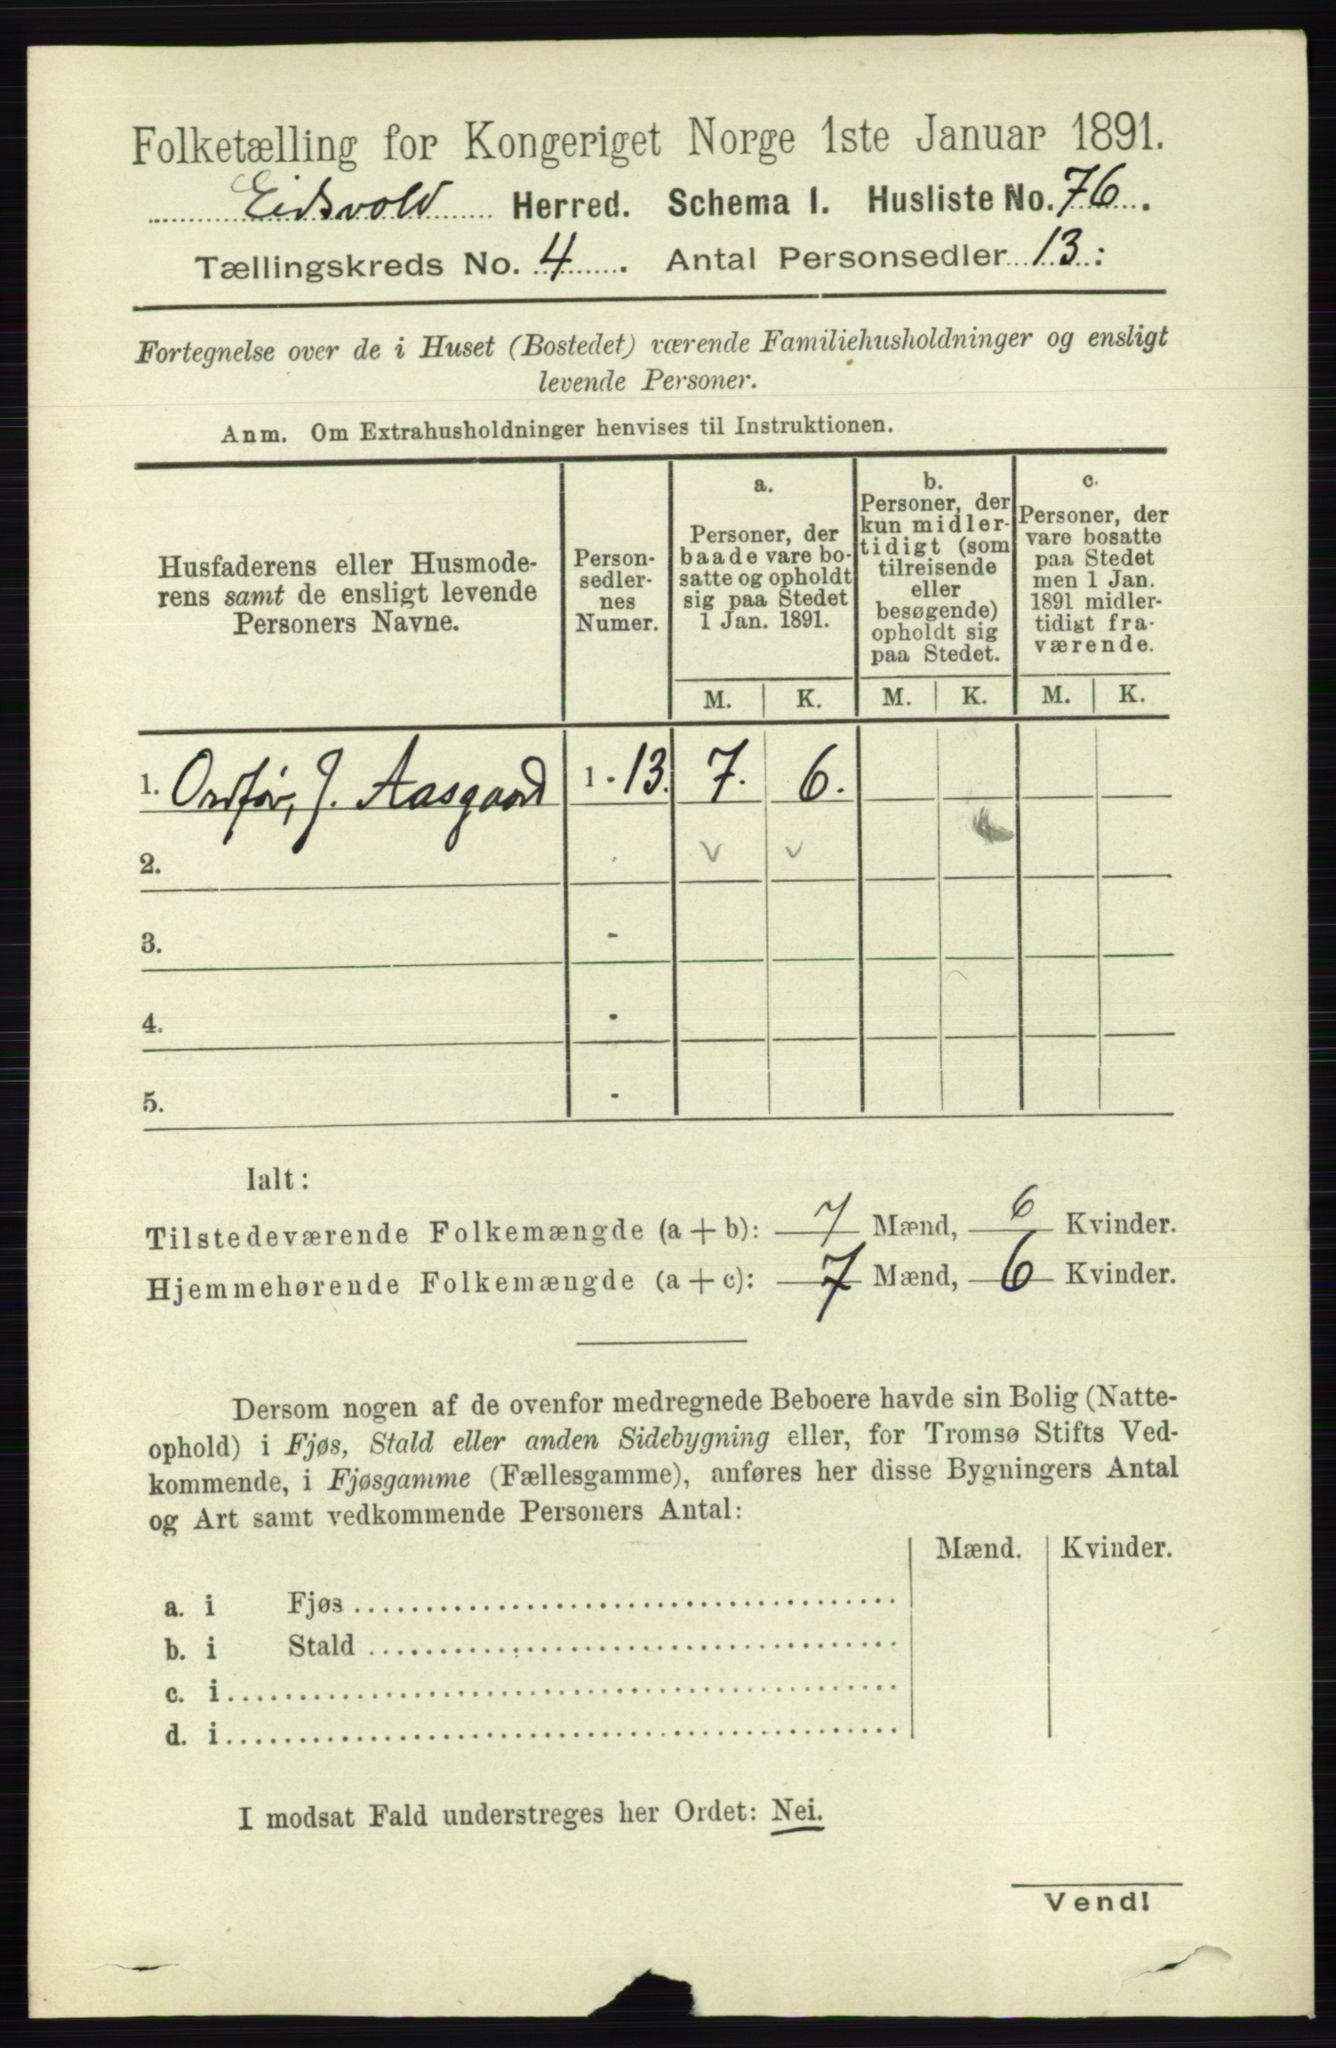 Folketælling for Kongeriget Norge 1ste Januar 1891.
Eidsvold Herred. Schema I. Husliste No. 76.
Tællingskreds No. 4. Antal Personsedler 13:
Fortegnelse over de i Huset (Bostedet) værende Familiehusholdninger og ensligt
levende Personer.
Anm. Om Extrahusholdninger henvises til Instruktionen.
Husfaderens eller Husmode-
rens samt de ensligt levende
Personers Navne.
Person-
sedler-
nes
Numer.
a.
Personer, der
baade vare bo-
satte og opholdt
sig paa Stedet
1 Jan. 1891.
b.
Personer, der
kun midler-
tidigt (som
tilreisende
eller
besøgende)
opholdt sig
paa Stedet.
c.
Personer, der
vare bosatte
paa Stedet
men 1 Jan.
1891 midler-
tidigt fra-
værende.
M. K. M. K. M. K.
1. Ordfør, J. Aasgaard 1 - 13. 7. 6.
2. v v
3. -
4. -
5. -
Ialt:
Tilstedeværende Folkemængde (a + b): 7 Mænd, 6 Kvinder.
Hjemmehørende Folkemængde (a + c): 7 Mænd, 6 Kvinder.
Dersom nogen af de ovenfor medregnede Beboere havde sin Bolig (Natte-
ophold) i Fjøs, Stald eller anden Sidebygning eller, for Tromsø Stifts Ved-
kommende, i Fjøsgamme (Fællesgamme), anføres her disse Bygningers Antal
og Art samt vedkommende Personers Antal:
Mænd. Kvinder.
a. i Fjøs
b. i Stald
c. i
d. i
I modsat Fald understreges her Ordet: Nei.
Vend!